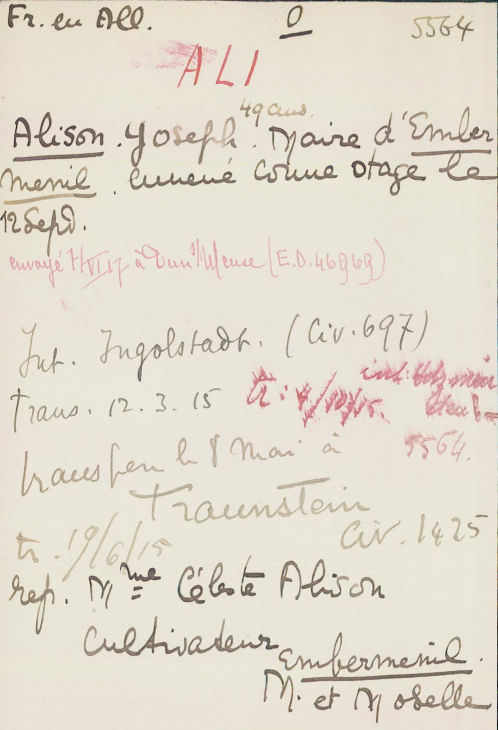 Fr. en All. O 5564
ALI
49 ans.
Alison. Joseph. Maire d'Ember
menil. emmené comme otage le
12 Sept.
envoyé 7/VI/17 à Dun s/Meuse (E.D. 46969)
Int. Ingolstadt. (Civ. 697)
trans. 12. 3. 15 tr: 4/10/15. int. Holzmin
5564.
transféré le 8 Mai à
Traunstein
tr. 19/6/15 Civ. 1425
rep. Mme Céleste Alison
Cultivateur
Embermenil.
M. et Moselle